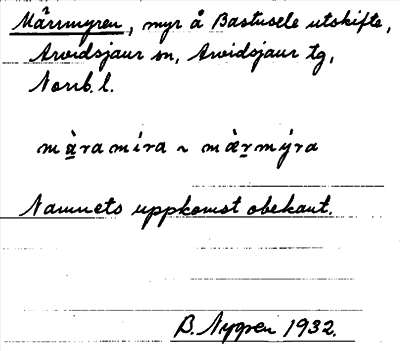 Märrmyren, myr å Bastusele utskifte,
Arvidsjaur sn, Arvidsjaur tg,
Norrb. l.
màramíra ~ mæ̀rmýra
Namnets uppkomst obekant.
B. Nygren 1932.